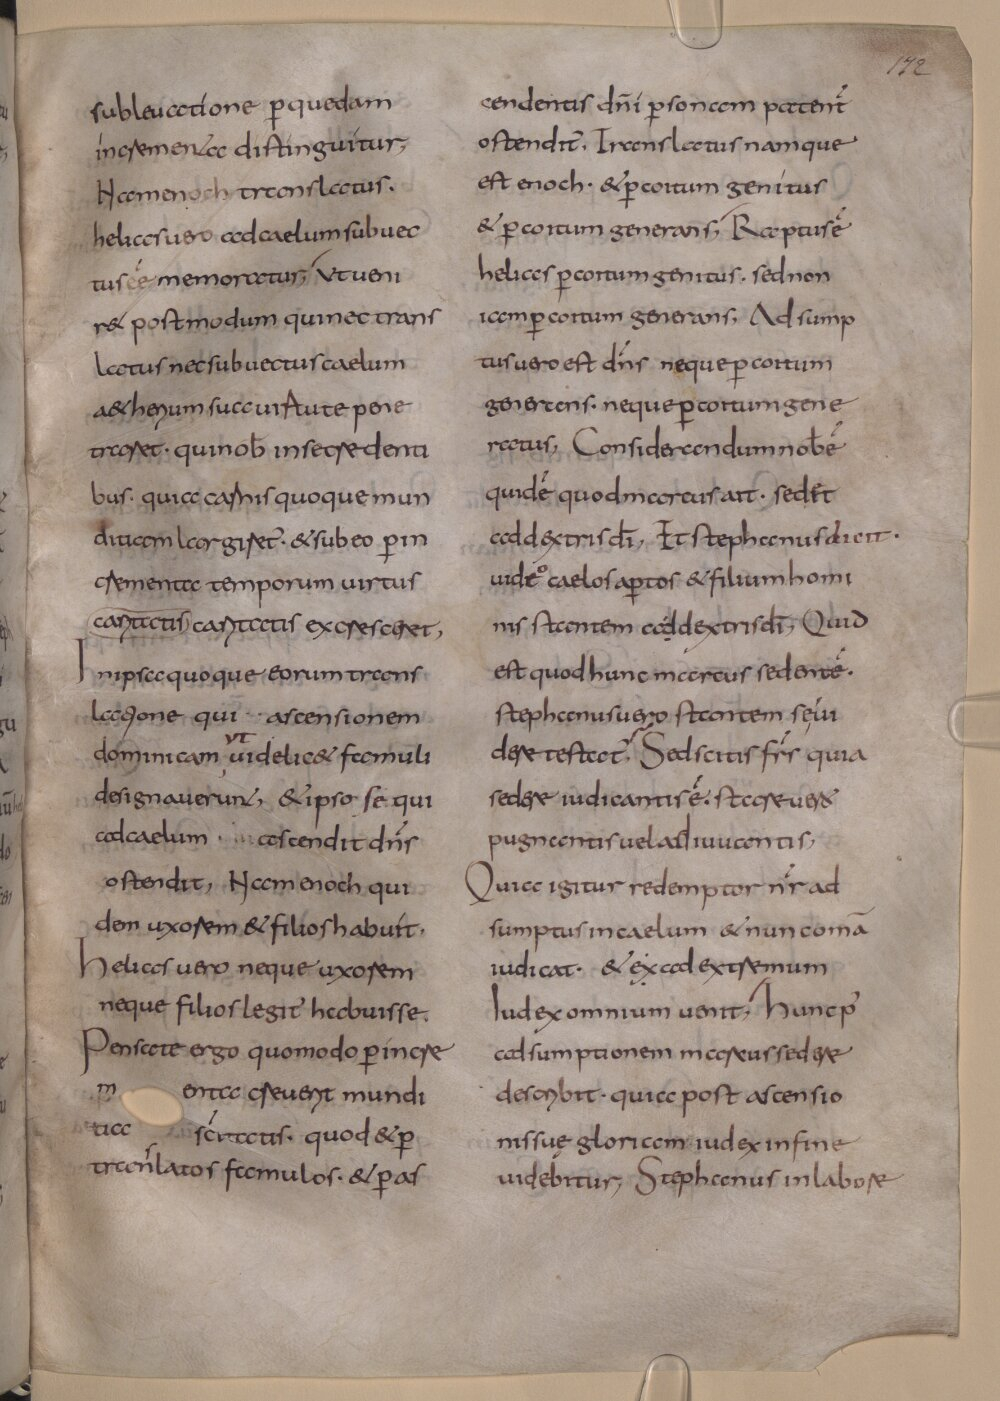 172
subleuatione ꝑ quedam
incrementa distinguitur;
Nam enoch translatus.
helias uero ad caelum subuec
tus eē memoratur; Vt ueni
r& postmodum qui nec trans
latus nec subuectus caelum
a&herium sua uirtute pene
traret. qui nob̄ in se credenti
bus. quia carnis quoque mun
ditiam largiret̄. & sub eo ꝑ in
crementa temporum uirtus
caritatis castitatis excresceret;
In ipsa quoque eorum trans
latione qui ascensionem
dominicam ut uidelic& famuli
designauerunt; & ipso se qui
ad caelum ascendit dn̄s
ostendit; Nam enoch qui
dem uxorem & filios habuit;
helias uero neque uxorem
neque filios legit̄ habuisse.
Pensate ergo quomodo ꝑ incre
m enta creuerit mundi
tia sc̄itatis. quod & ꝑ
translatos famulos. & ꝑ as
cendentis dn̄i ꝑsonam patent̄
ostendit̄; Translatus namque
est enoch. & ꝑ coitum genitus
& ꝑ coitum generans; Raptus ē
helias ꝑ coitum genitus. sed non
iam ꝑ coitum generans; Adsump
tus uero est dn̄s neque ꝑ coitum
generans. neque ꝑ coitum gene
ratus; Considerandum nob̄ ē
quidē quod marcus ait. sedet
ad dextris dī; Et stephanus dicit.
uideo caelos aꝑtos & filium homi
nis stantem ad dextris dī; Quid
est quod hunc marcus sedentē.
stephanus uero stantem se ui
dere testat̄; Sed scitis frs̄ quia
sedere iudicantis ē. stare uero
pugnantis uel adiuuantis;
Quia igitur redemptor nr̄ ad
sumptus in caelum & nunc omā
iudicat. & ex ad extremum
Iudex omnium uenit; hunc p̄
adsumptionem marcus sedere
describit. quia post ascensio
nis suę gloriam iudex in fine
uidebitur; Stephanus in labore